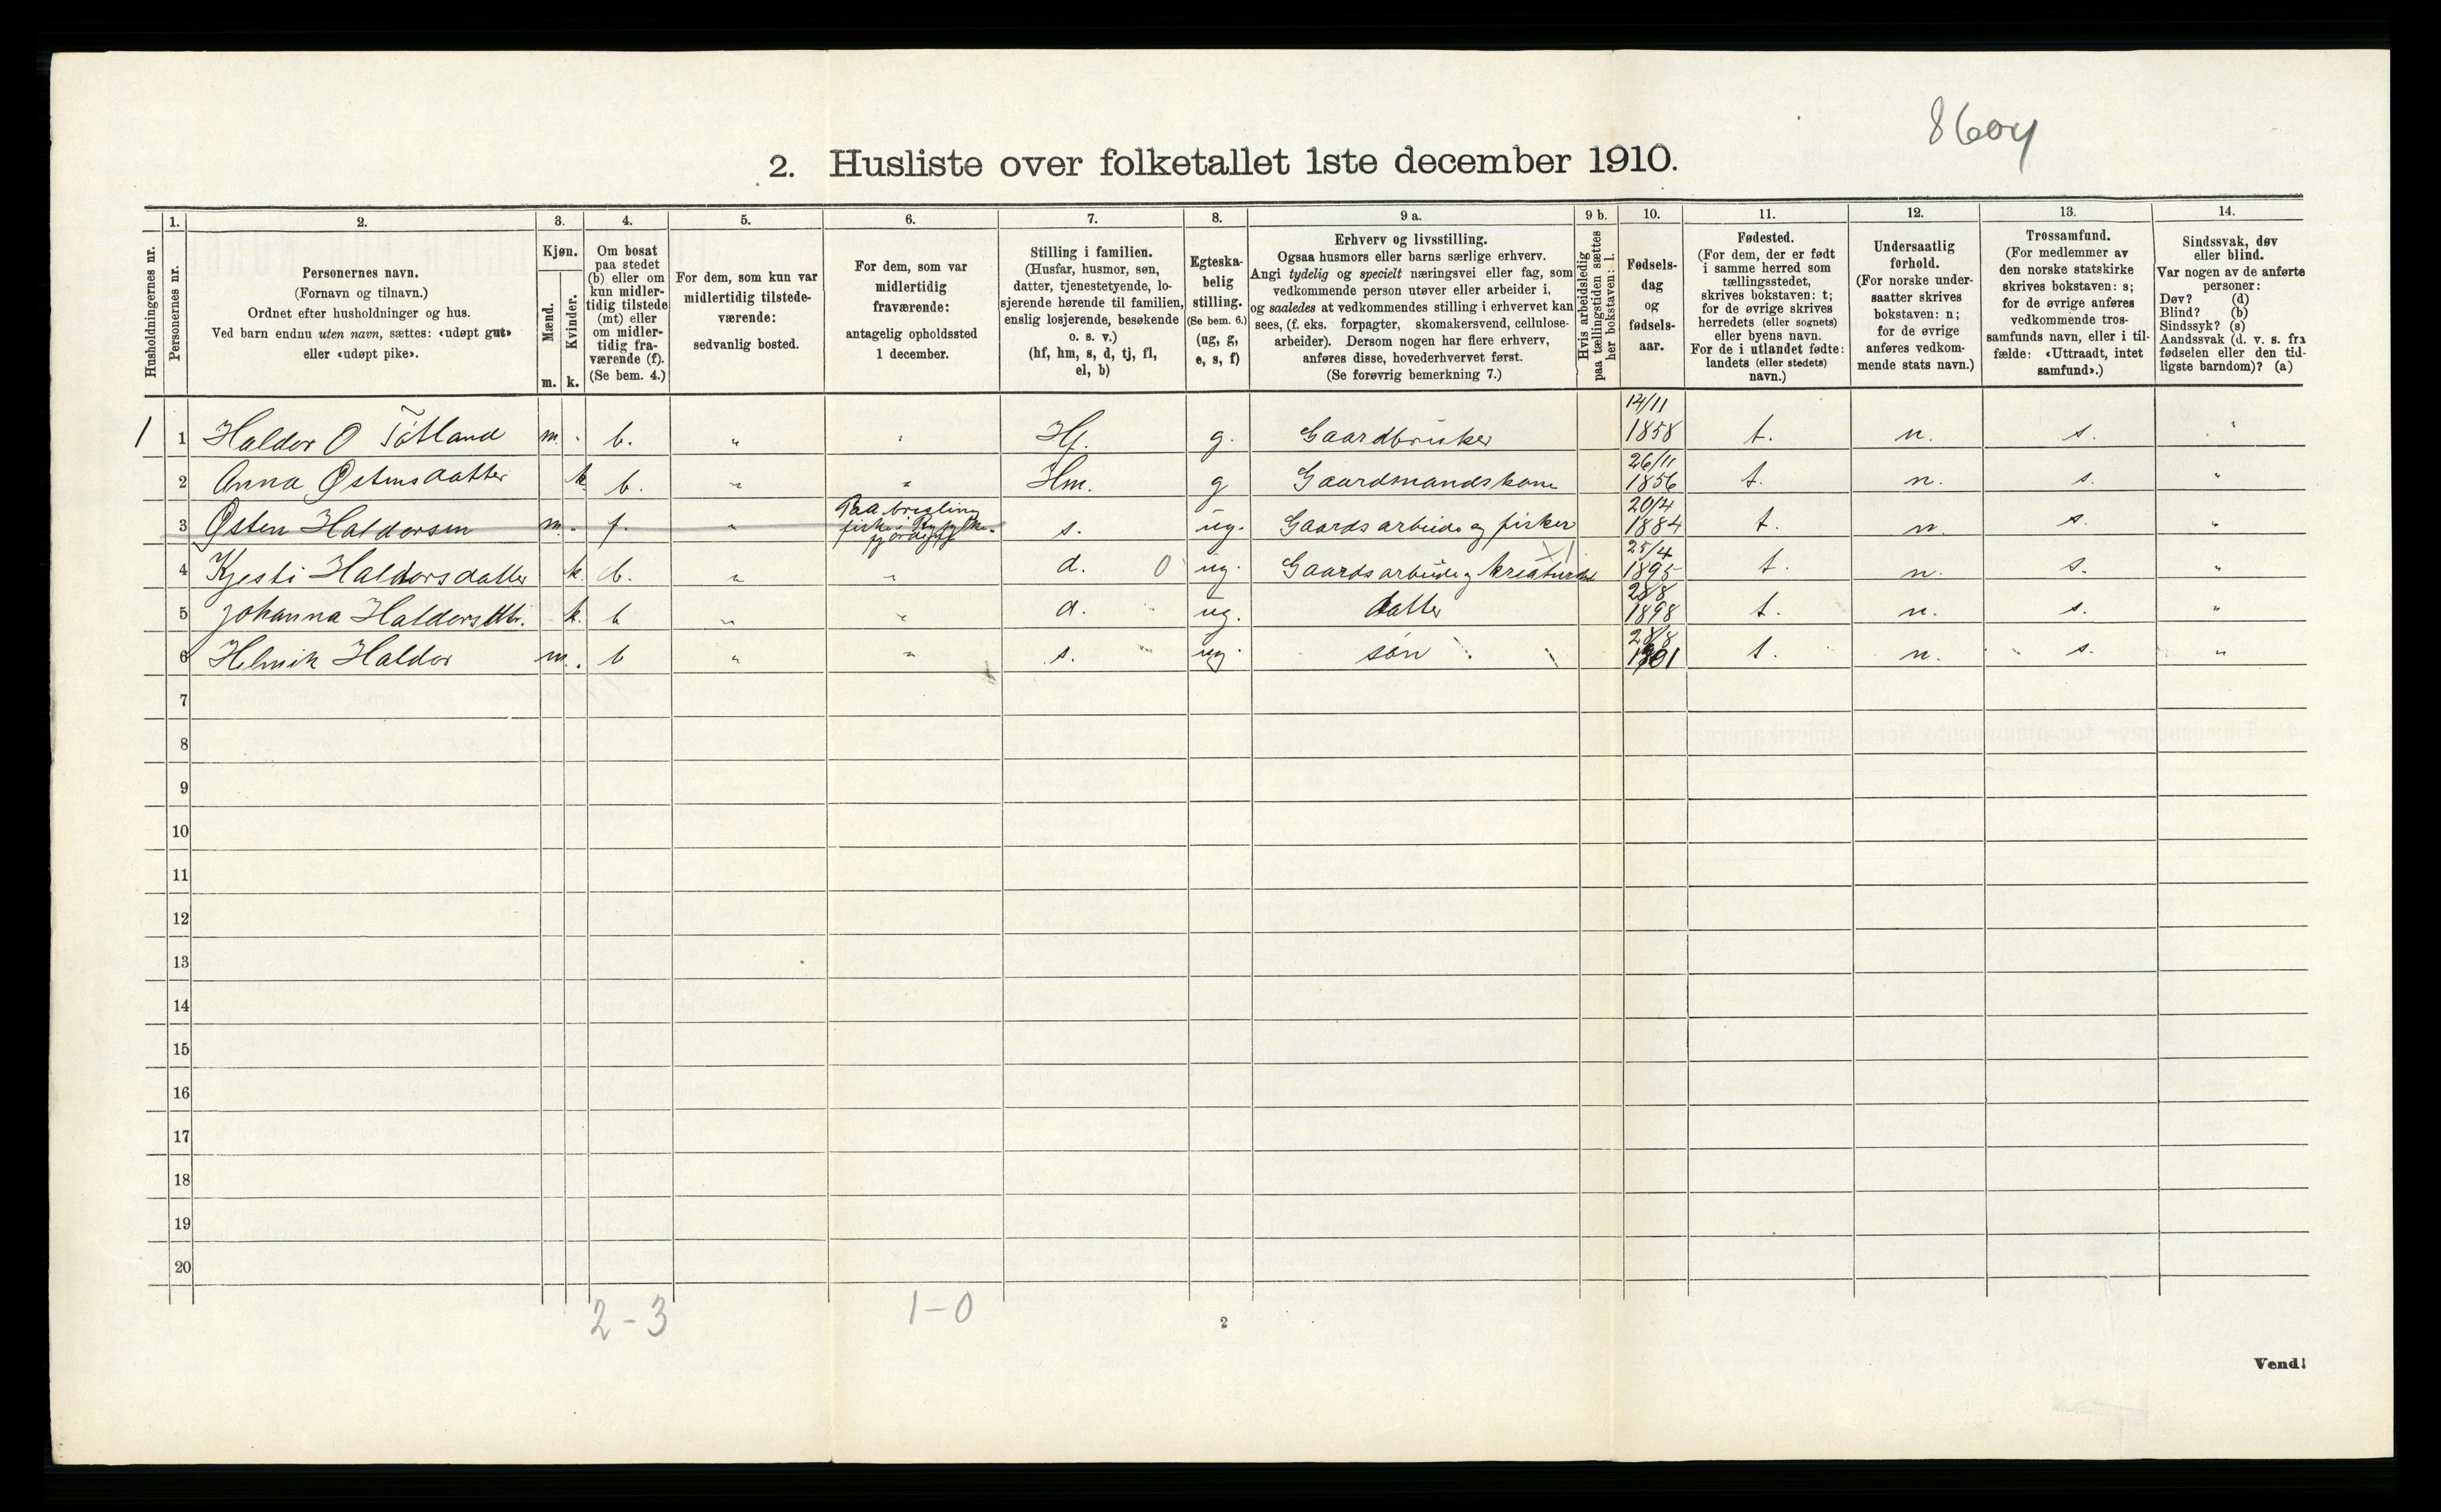 8604
2. Husliste over folketallet 1ste december 1910.
Husholdningernes nr.
1.
Personernes nr.
2.
Personernes navn.
(Fornavn og tilnavn.)
Ordnet efter husholdninger og hus.
Ved barn endnu uten navn, sættes: «udøpt gut»
eller «udøpt pike».
3.
Kjøn.
Mænd.
Kvinder.
m. k.
4.
Om bosat
paa stedet
(b) eller om
kun midler-
tidig tilstede
(mt) eller
om midler-
tidig fra-
værende (f).
(Se bem. 4.)
5.
For dem, som kun var
midlertidig tilstede-
værende:
sedvanlig bosted.
6.
For dem, som var
midlertidig
fraværende:
antagelig opholdssted
1 december.
7.
Stilling i familien.
(Husfar, husmor, søn,
datter, tjenestetyende, lo-
sjerende hørende til familien,
enslig losjerende, besøkende
o. s. v.)
(hf, hm, s, d, tj, fl,
el, b)
8.
Egteska-
belig
stilling.
(Se bem. 6.)
(ug, g,
e, s, f)
9 a.
Erhverv og livsstilling.
Ogsaa husmors eller barns særlige erhverv.
Angi tydelig og specielt næringsvei eller fag, som
vedkommende person utøver eller arbeider i,
og saaledes at vedkommendes stilling i erhvervet kan
sees, (f. eks. forpagter, skomakersvend, cellulose-
arbeider). Dersom nogen har flere erhverv,
anføres disse, hovederhvervet først.
(Se forøvrig bemerkning 7.)
9 b.
Hvis arbeidsledig
paa tællingstiden sættes
her bokstaven: l.
10.
Fødsels-
dag
og
fødsels-
aar.
11.
Fødested.
(For dem, der er født
i samme herred som
tællingsstedet,
skrives bokstaven: t;
for de øvrige skrives
herredets (eller sognets)
eller byens navn.
For de i utlandet fødte:
landets (eller stedets)
navn.)
12.
Undersaatlig
forhold.
(For norske under-
saatter skrives
bokstaven: n;
for de øvrige
anføres vedkom-
mende stats navn.)
13.
Trossamfund.
(For medlemmer av
den norske statskirke
skrives bokstaven: s;
for de øvrige anføres
vedkommende tros-
samfunds navn, eller i til-
fælde: «Uttraadt, intet
samfund».)
14.
Sindssvak, døv
eller blind.
Var nogen av de anførte
personer:
Døv? (d)
Blind? (b)
Sindssyk? (s)
Aandssvak (d. v. s. fra
fødselen eller den tid-
ligste barndom)? (a)
1 1 Haldor O Totland m. b. " " Hf. g. Gaardbruker 14/11 1858 t. n. s. "
2 Anna Østensdatter k. b. " " Hm. g Gaardmandskone 26/11 1856 t. n. s. "
3 Østen Haldorsen m. f. " Paa brisling fiske i Ryfylke. s. ug. Gaardsarbeide og fisker 20/4 1884 t. n. s. "
4 Kjesti Haldorsdatter k. b. " " d. 0 ug. Gaardsarbeide og kreaturstel X1 25/4 1895 t. n. s. "
5 Johanna Haldorsdtr. k. b " " d. ug. datter 28/8 1898 t. n. s. "
6 Helmik Haldor m. b " " s. ug. søn 28/8 1901 t. n. s. "
7
8
9
10
11
12
13
14
15
16
17
18
19
20
2-3 1-0
2
Vend!